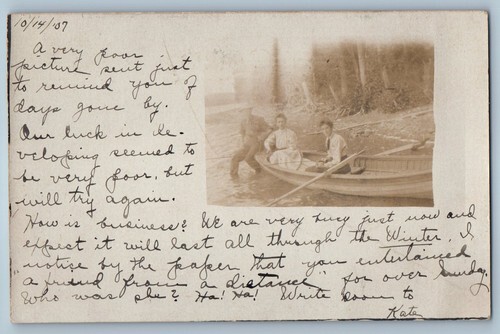 10/14/07
A very poor
picture sent just
to remind you of
days gone by.
Our luck in de-
veloping seemed to
be very poor, but
will try again.
How is business? We are very busy just now and
expect it will last all through the Winter. I
"notice by the paper that you entertained
a friend from a distance" for over Sunday.
Who was she? Ha! Ha! Write soon to
Kate